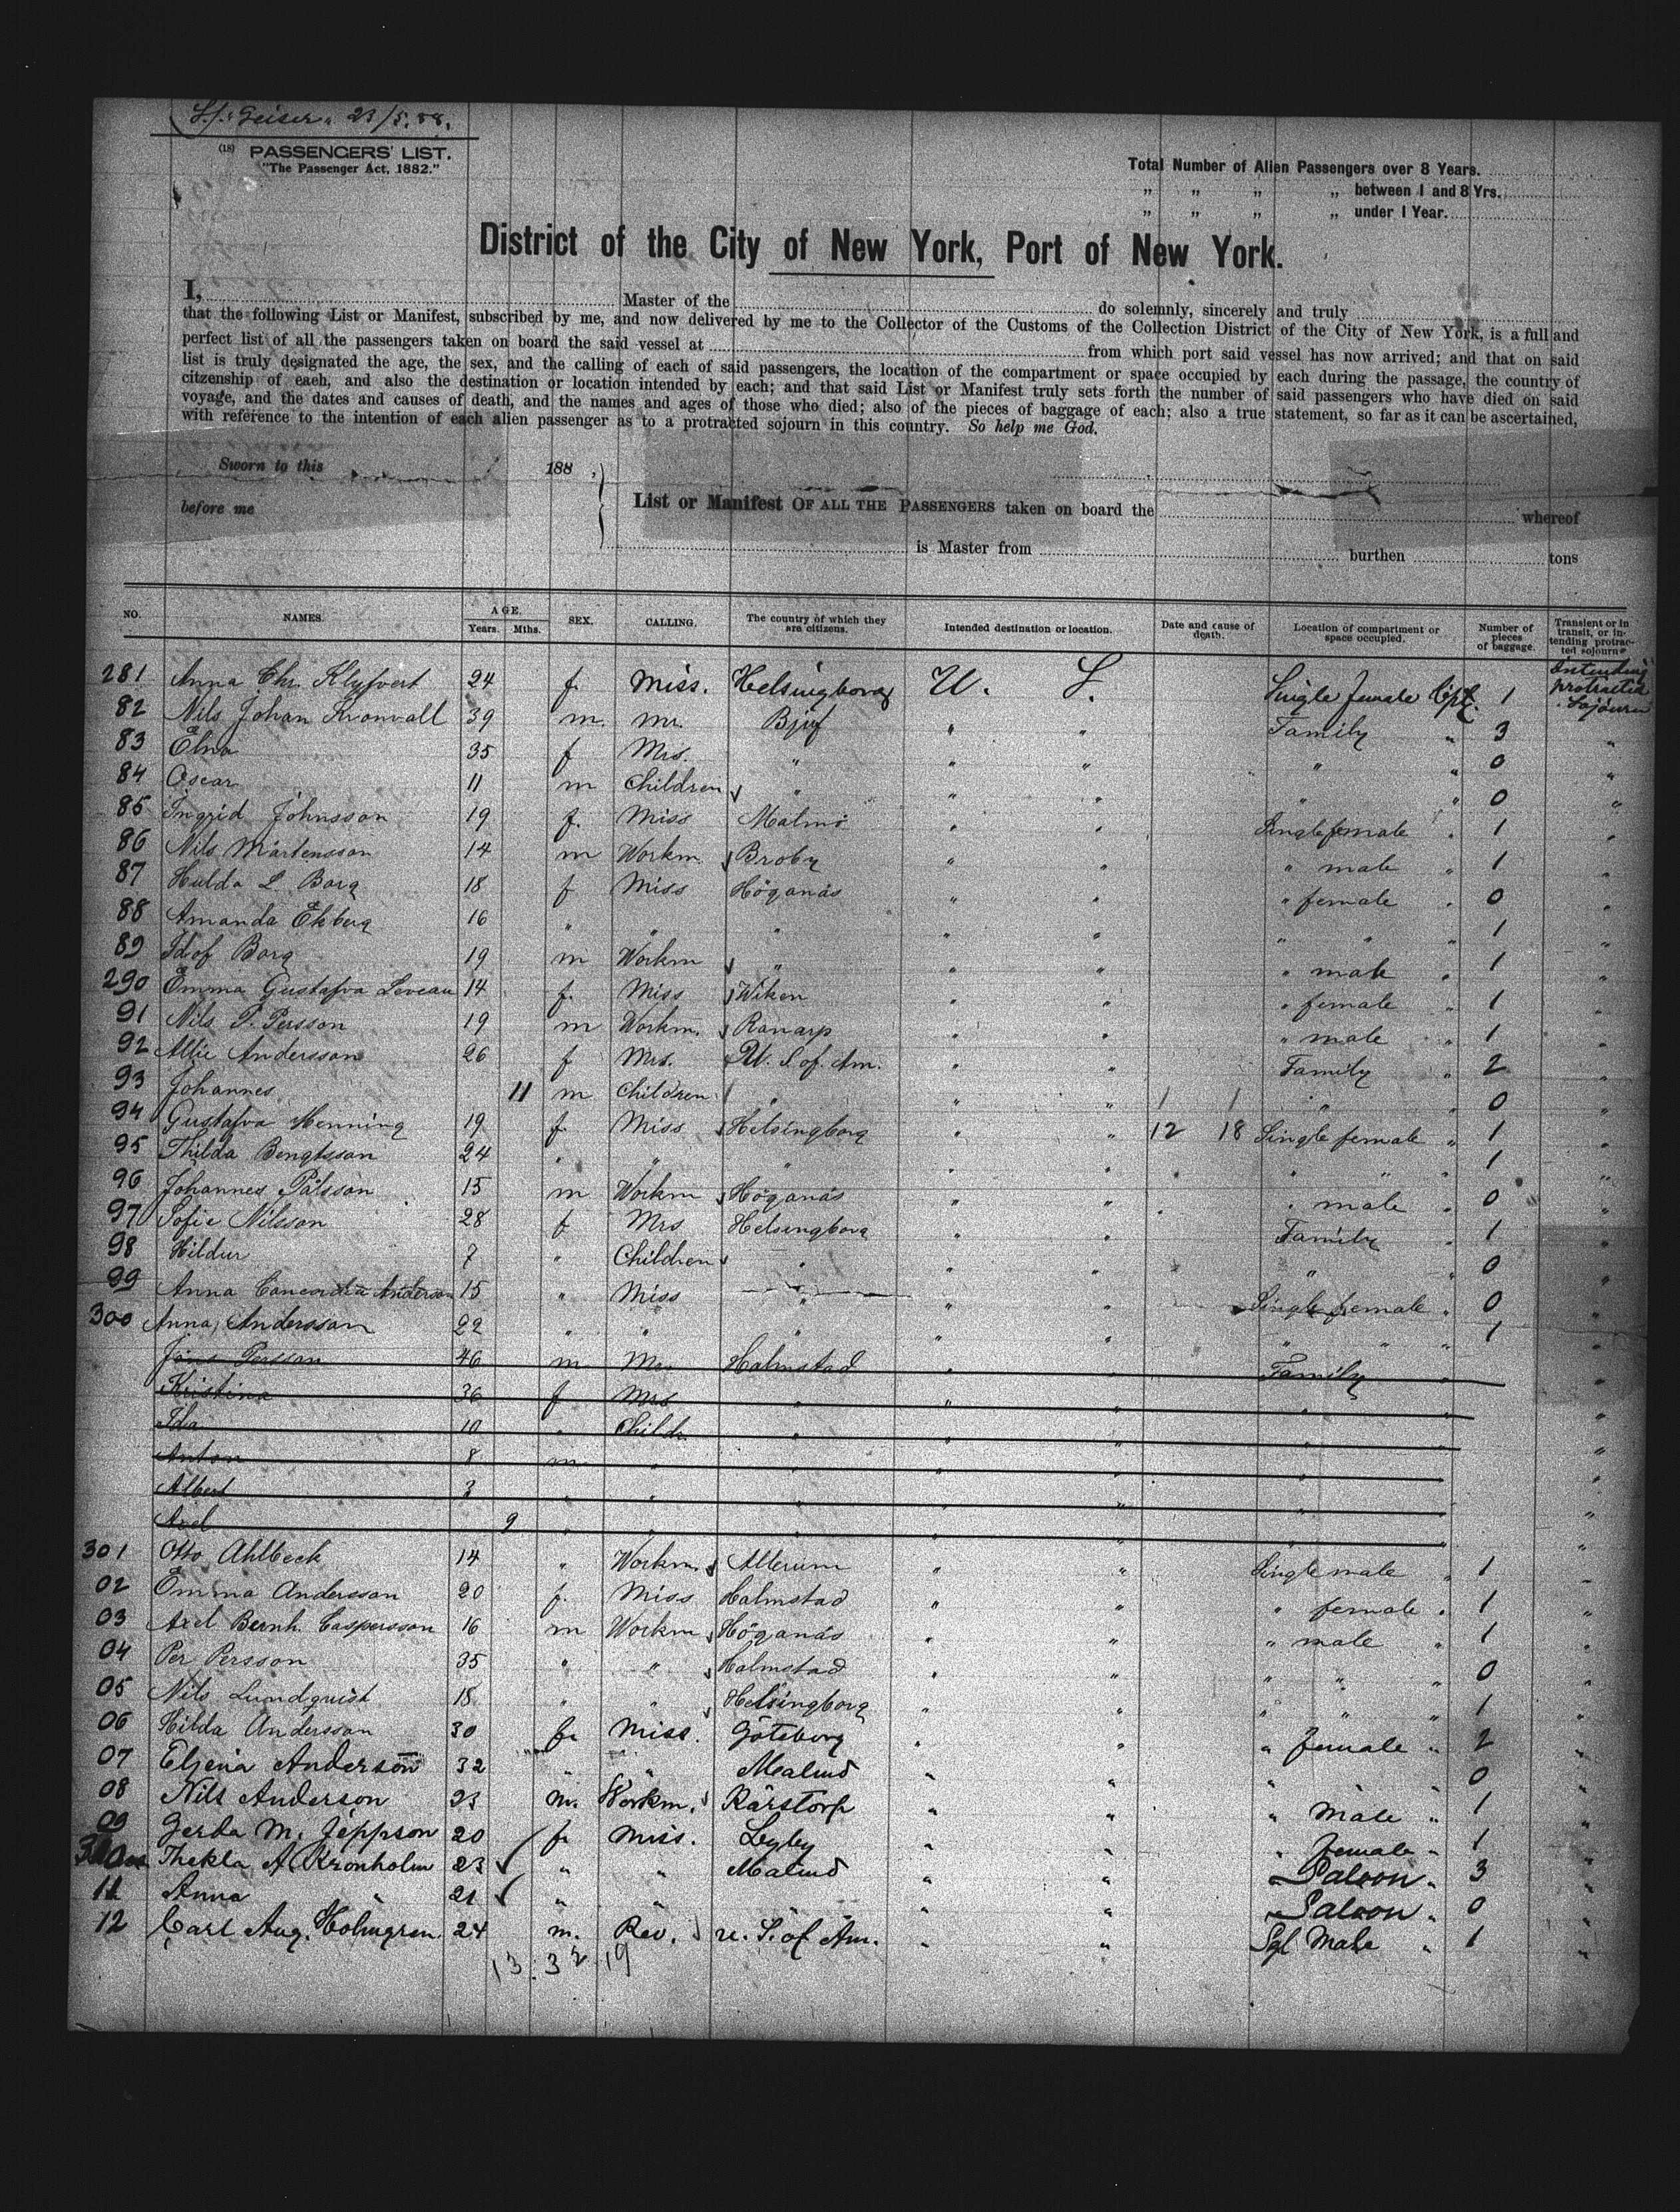 S/S "Geiser" 23/5. 88.
(18) PASSENGERS' LIST.
"The Passenger Act, 1882."
Total Number of Alien Passengers over 8 Years.
" " " " between 1 and 8 Yrs.
" " " " under 1 Year.
District of the City of New York, Port of New York.
I, Master of the do solemnly, sincerely and truly
that the following List or Manifest, subscribed by me, and now delivered by me to the Collector of the Customs of the Collection District of the City of New York, is a full and
perfect list of all the passengers taken on board the said vessel at from which port said vessel has now arrived; and that on said
list is truly designated the age, the sex, and the calling of each of said passengers, the location of the compartment or space occupied by each during the passage, the country of
citzenship of eaeh, and also the destination or location intended by each; and that said List or Manifest truly sets forth the number of said passengers who have died on said
voyage, and the dates and causes of death, and the names and ages of those who died; also of the pieces of baggage of each; also a true statement, so far as it can be ascertained,
with reference to the intention of each alien passenger as to a protracted sojourn in this country. So help me God.
Sworn to this 188
before me
List or Manifest OF ALL THE PASSENGERS taken on board the whereof
is Master from burthen tons
NO. NAMES. AGE. Years. Mths. SEX. CALLING. The country of which they are citizens. Intended destination or location. Date and cause of death. Location of compartment or space occupied. Number of pieces of baggage. Transient or in transit, or intending protracted sojourn
281 Anna Chr. Klyfvert 24 f. Miss. Helsingborg U. S. Single female Cpt. 1 Intending protracted Sojourn
82 Nils Johan Kronvall 39 m. Mr. Bjuf " " Family " 3 "
83 Elna 35 f Mrs. " " " " " 0 "
84 Oscar 11 m Children " " " " " 0 "
85 Ingrid Johnsson 19 f. Miss Malmö " " Single female " 1 "
86 Nils Mårtensson 14 m Workm. Broby " " " male " 1 "
87 Hulda L. Borg 18 f Miss Höganäs " " " female " 0 "
88 Amanda Ekberg 16 " " " " " " " " 1 "
89 Idof Borg 19 m Workm " " " " male " 1 "
290 Emma Gustafva Leveau 14 f. Miss Wiken " " " female " 1 "
91 Nils P. Persson 19 m Workm. Ranarp " " " male " 1 "
92 Allie Andersson 26 f Mrs. U. S. of Am. " " Family " 2 "
93 Johannes 11 m Children " " " " " 0 "
94 Gustafva Henning 19 f. Miss Helsingborg " " 12 18 Single female " 1 "
95 Thilda Bengtsson 24 " " " " " " " " 1 "
96 Johannes Pålsson 15 m Workm Höganäs " " " male " 0 "
97 Sofie Nilsson 28 f Mrs Helsingborg " " Family " 1 "
98 Hildur 7 " Children " " " " " 0 "
99 Anna Concordia Anderson 15 " Miss " " " Single female " 0 "
300 Anna Andersson 22 " " " " " " " " 1 "
Jöns Persson 46 m Mr Halmstad " " Family " "
Kristina 36 f Mrs " " " " " "
Ida 10 " Childr. " " " " " "
Anton 8 m " " " " " " "
Albert 3 " " " " " " " "
Axel 9 " " " " " " " "
301 Otto Ahlbeck 14 " Workm. Allerum " " Single male " 1 "
02 Emma Andersson 20 f. Miss Halmstad " " " female " 1 "
03 Axel Bernh. Caspersson 16 m Workm Höganäs " " " male " 1 "
04 Per Persson 35 " " Halmstad " " " " " 0 "
05 Nils Lundquist 18 " " Helsingborg " " " " " 1 "
06 Hilda Andersson 30 f. Miss. Göteborg " " " female " 2 "
07 Anderson 32 " " Malmö " " " " " 0 "
08 Nils Anderson 23 m. Workm. Kärstorp " " " male " 1 "
09 Gerda M. Jeppson 20 f. Miss. " " " female " 1 "
Thekla A Kronholm 23 " " Malmö " " Saloon " 3 "
11 Anna 21 " " " " Saloon " 0 "
12 Carl Aug. Holmgren 24 m. Rev. U. S. of Am. " " Sgl Male " 1 "
13. 32 19